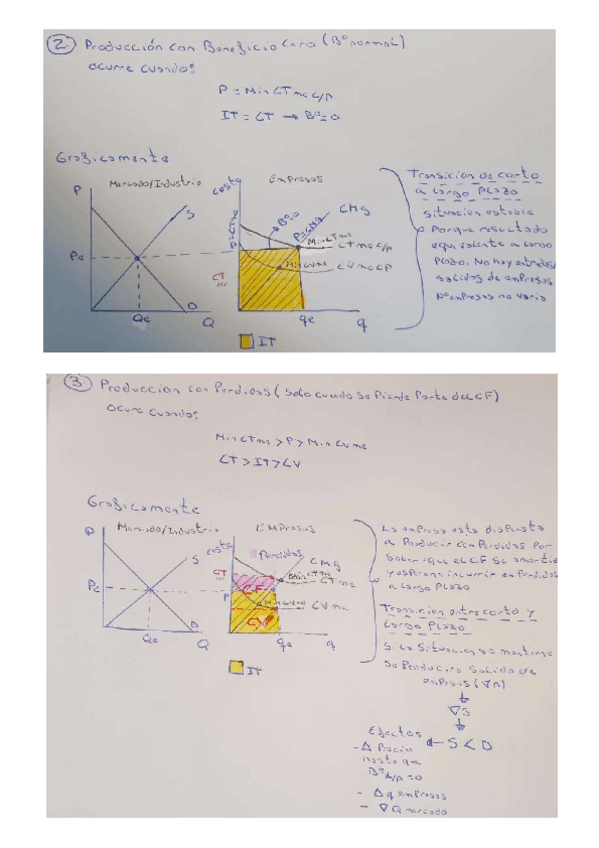 2. Producción con Beneficio Cero (Bº normal)
ocurre cuando:
P = Min CTme c/p
IT = CT → Bº=0
Graficamente
P
Mercado/Industria
S
Pe
Qe
D
Q
costo
Empresas
P=CTme
Bº=0
P=CMg
CMg
Min CTme
CTme c/p
Min CVme
CVme CP
CT
qe
q
IT
Transicion de corto
a Largo Plazo
situacion estable
Porque resultado
equivalente a Largo
Plazo. No hay entradas/
salidas de empresas
nº empresas no varia
3. Produccion con Perdidas (solo cuando se Pierde Parte del CF)
Ocurre cuando:
Min CTme > P > Min CVme
CT > IT > CV
Graficamente
P
Mercado/Industria
S
Pe
Qe
D
Q
costo
Empresas
Perdidas
CMg
Min CTme
CTme
CT
CF
P
Min CVme
CVme
CV
qe
q
IT
La empresa esta dispuesta
a Producir con Perdidas Por
saber que el CF se
incurrir en Perdidas
a Largo Plazo
Transicion entre corto y
Largo Plazo
Si la Situacion se mantiene
se Producira Salida de
empresas (∇n)
↓
∇S
↓
← S < D
Efectos
- Δ Precio
hasta que
Bº L/P = 0
- Δ q empresas
- ∇ Q mercado